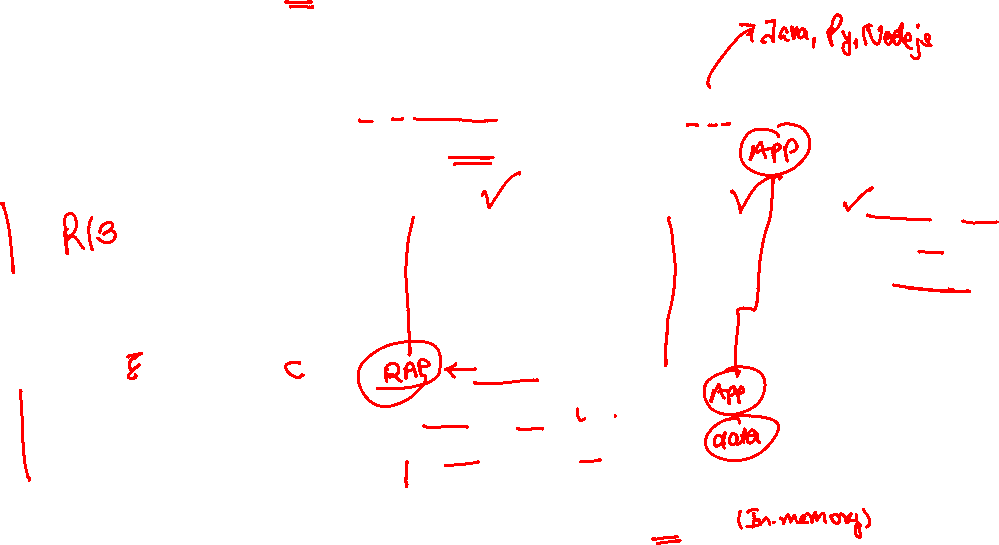 Java, Py, Nodejs
App
R/3
C
RAP
App
data
(In-memory)